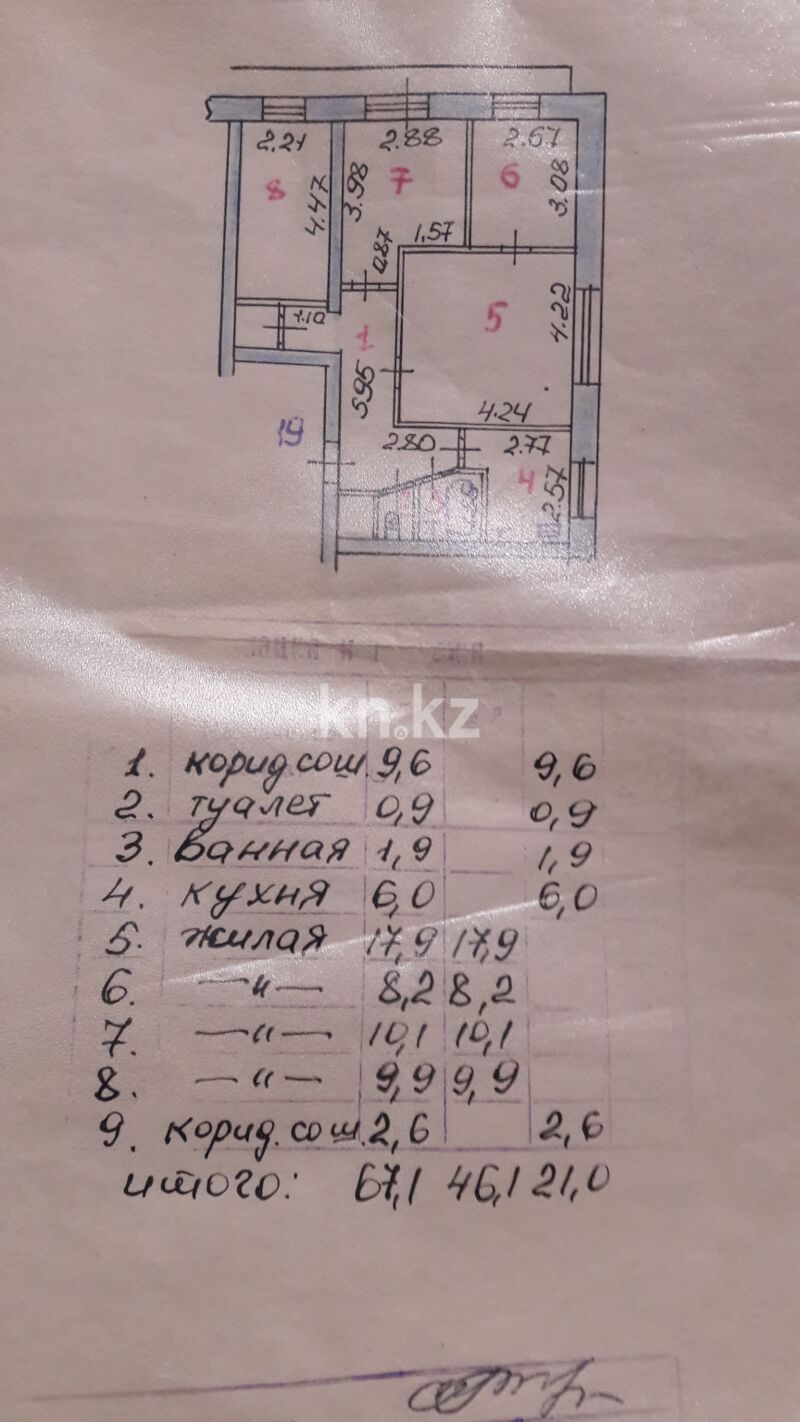 2.21
2.88
2.67
8
7
6
4.47
3.98
3.08
1.57
0.87
1.10
1
5
4.22
5.95
4.24
19
2.80
2.77
4
2.57
kn.kz
1. корид.сош. 9,6 9,6
2. туалет 0,9 0,9
3. ванная 1,9 1,9
4. кухня 6,0 6,0
5. жилая 17,9 17,9
6. —〃— 8,2 8,2
7. —〃— 10,1 10,1
8. —〃— 9,9 9,9
9. корид.сош. 2,6 2,6
итого: 67,1 46,1 21,0